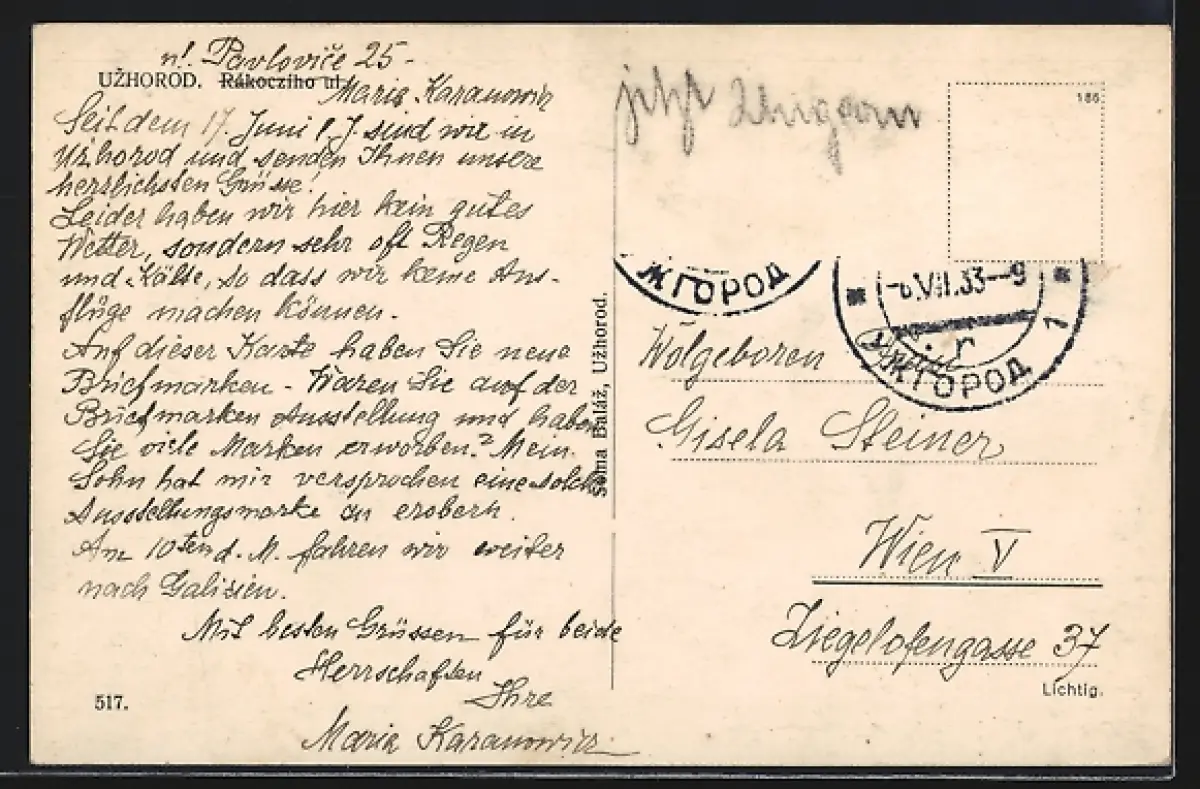 ul. Pavloviče 25-
UŽHOROD. Rákocziho ul.
Maria Karanowicz
Seit dem 17. Juni l. J. sind wir in
Užhorod und senden Ihnen unsere
herzlichsten Grüsse!
Leider haben wir hier kein gutes
Wetter, sondern sehr oft Regen
und Kälte, so dass wir keine Aus-
flüge machen können.
Auf dieser Karte haben Sie neue
Briefmarken - Waren Sie auf der
Briefmarken Ausstellung und haben
Sie viele Marken erworben? Mein
Sohn hat mir versprochen eine solche
Ausstellungsmarke zu erobern.
Am 10ten d. M. fahren wir weiter
nach Galizien.
Mit besten Grüssen für beide
Herrschaften
Ihre
Maria Karanowicz
517.
Soma Baláž, Užhorod.
jetzt Ungarn
186
ЖГОРОД
-6.VII.33--9
УЖГОРОД
1
Wolgeboren
Gisela Steiner
Wien V
Ziegelofengasse 37
Lichtig.